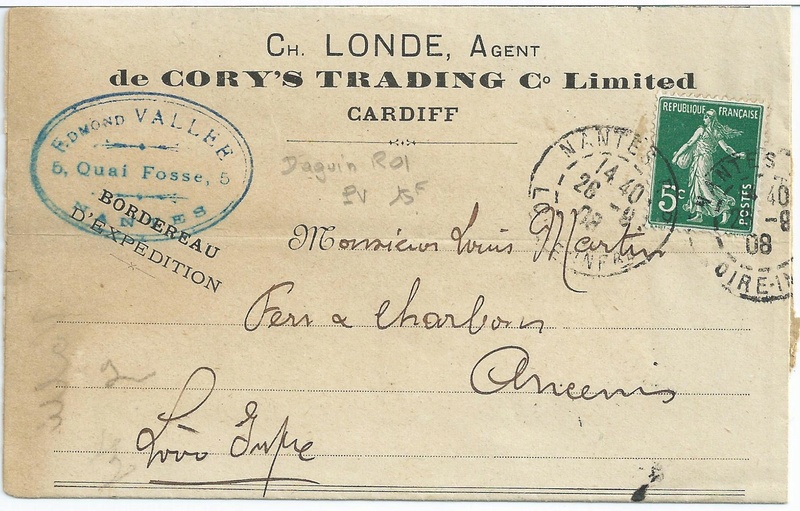 CH. LONDE, AGENT
de CORY'S TRADING Cº Limited
CARDIFF
EDMOND VALLEE
5, Quai Fosse, 5
NANTES
BORDEREAU
D'EXPÉDITION
Daguin R01
PV 15F
REPUBLIQUE FRANÇAISE
5c
POSTES
NANTES
14 40
26 -8
08
LOIRE-INFRE
NTES
40
-8
08
OIRE-IN
Monsieur Louis Martin
Fers & Charbons
Ancenis
Loire Infre